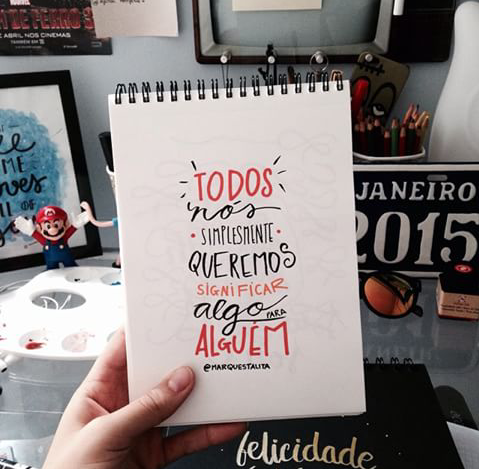 MARVEL
DE FERRO 3
DE ABRIL NOS CINEMAS
ME
TODOS
nós
• SIMPLESMENTE •
QUEREMOS
SIGNIFICAR
algo PARA
ALGUÉM
@MARQUESTALITA
JANEIRO
2015
felicidade